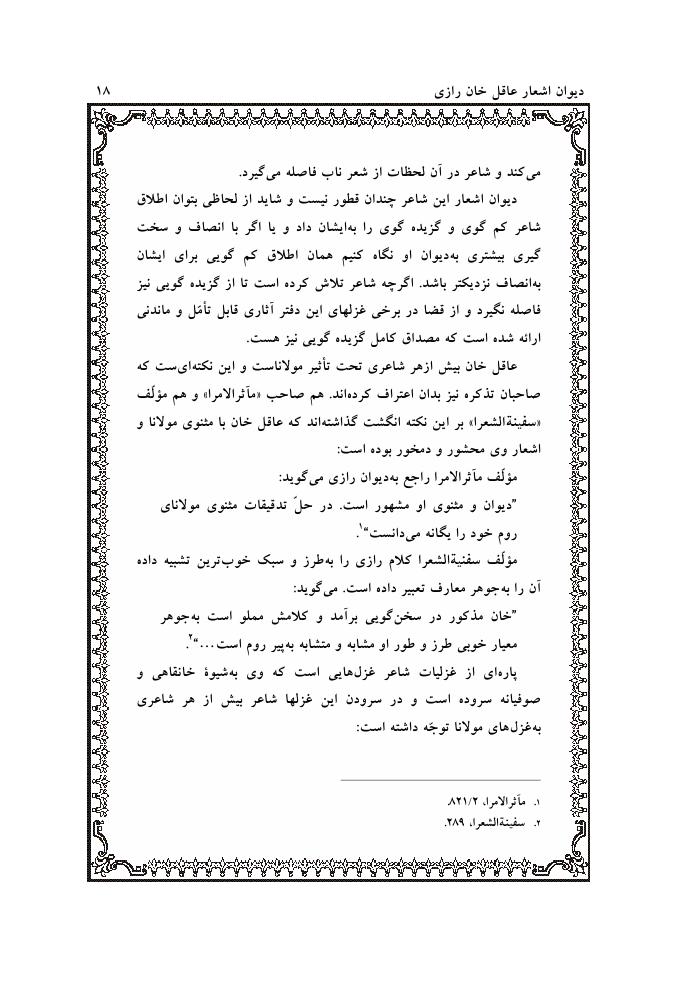 دیوان اشعار عاقل خان رازی ۱۸
می‌کند و شاعر در آن لحظات از شعر ناب فاصله می‌گیرد.
دیوان اشعار این شاعر چندان قطور نیست و شاید از لحاظی بتوان اطلاق
شاعر کم گوی و گزیده گوی را به‌ایشان داد و یا اگر با انصاف و سخت
گیری بیشتری به‌دیوان او نگاه کنیم همان اطلاق کم گویی برای ایشان
به‌انصاف نزدیکتر باشد. اگرچه شاعر تلاش کرده است تا از گزیده گویی نیز
فاصله نگیرد و از قضا در برخی غزلهای این دفتر آثاری قابل تأمّل و ماندنی
ارائه شده است که مصداق کامل گزیده گویی نیز هست.
عاقل خان بیش ازهر شاعری تحت تأثیر مولاناست و این نکته‌ای‌ست که
صاحبان تذکره نیز بدان اعتراف کرده‌اند. هم صاحب «مآثرالامرا» و هم مؤلّف
«سفینةالشعرا» بر این نکته انگشت گذاشته‌اند که عاقل خان با مثنوی مولانا و
اشعار وی محشور و دمخور بوده است:
مؤلّف مآثرالامرا راجع به‌دیوان رازی می‌گوید:
”دیوان و مثنوی او مشهور است. در حلّ تدقیقات مثنوی مولانای
روم خود را یگانه می‌دانست“۱.
مؤلّف سفنیةالشعرا کلام رازی را به‌طرز و سبک خوب‌ترین تشبیه داده
آن را به‌جوهر معارف تعبیر داده است. می‌گوید:
”خان مذکور در سخن‌گویی برآمد و کلامش مملو است به‌جوهر
معیار خوبی طرز و طور او مشابه و متشابه به‌پیر روم است...“۲.
پاره‌ای از غزلیات شاعر غزل‌هایی است که وی به‌شیوهٔ خانقاهی و
صوفیانه سروده است و در سرودن این غزلها شاعر بیش از هر شاعری
به‌غزل‌های مولانا توجّه داشته است:
۱. مآثرالامرا، ۸۲۱/۲.
۲. سفینةالشعرا، ۲۸۹.